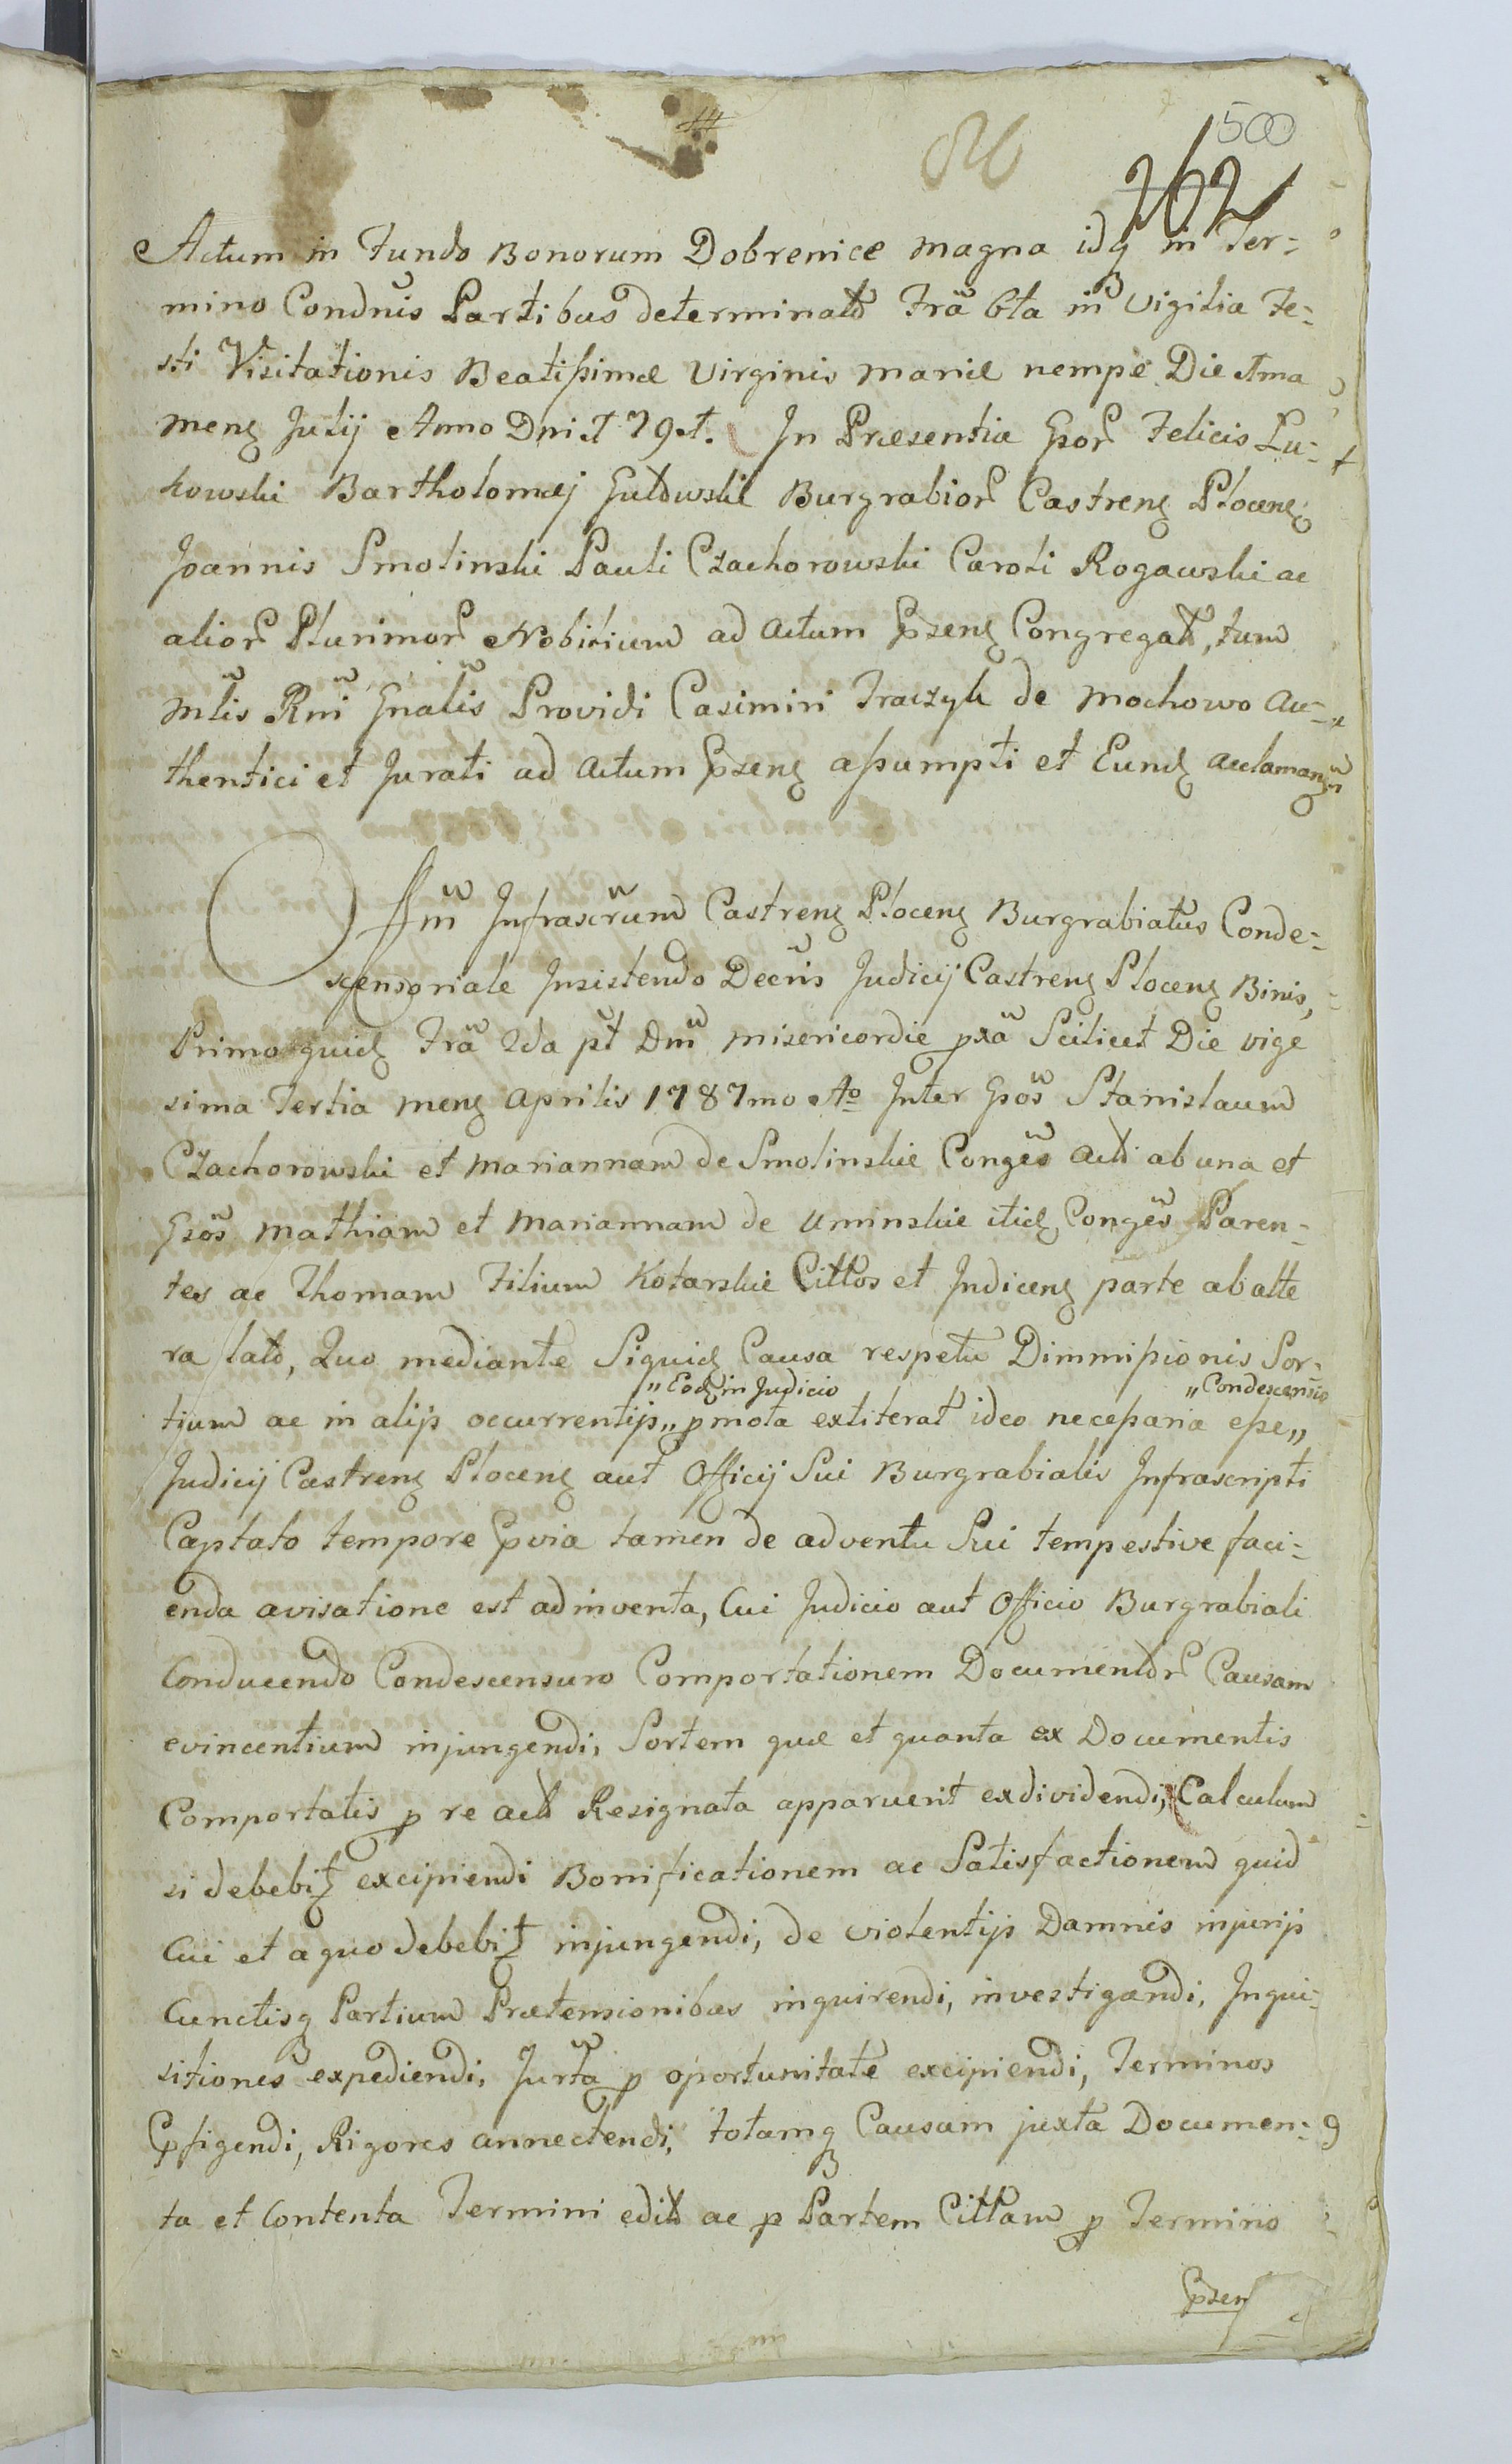 500
262
Actum in Fundo Bonorum Dobrenice Magna idq in Ter=
mino Condnis Partibus determinato Fra 6ta in Vigilia Fe=
sti Visitationis Beatissimae Virginis Mariae nempe Die 1ma
Mens Julij Anno Dni 1791. In Praesentia Gsor Felicis Lu=
kowski Bartholomaej Gutowskie Burgrabior Castrens Plocens
Joannis Smolinski Pauli Czachorowski Caroli Rogawski ac
alior Plurimor Nobilium ad Actum Psens Congregat, tum
Mlis Rni Gnalis Providi Casimiri Traczyk de Mochowo Au=
thentici et Jurati ad Actum Psens assumpti et Eund aclaman
Offm Infrascrum Castrens Plocens Burgrabiatus Conde=
scensoriale Insistendo Decris Judicij Castrens Plocens Binis,
Primo quid Fra 2da pt Dm Misericordie pxa Scilicet Die vige
sima Tertia Mens Aprilis 1787mo Ao Inter Gsos Stanislaum
Czachorowski et Mariannam de Smolinskie Conges Act ab una et
Gsos Mathiam et Mariannam de Uminskie itid Conges Paren=
tes ac Thomam Filium Kotarskie Cittos et Indicens parte ab alte
ra lato, Quo mediante Siquid Causa respctu Dimmissionis Sor=
"Eod in Judicio "Condescensio
tium ac in alijs occurrentijs" pmota extiterat ideo necessaria esse"
Judicij Castrens Plocens aut Officij Sui Burgrabialis Infrascripti
Captato tempore Pvia tamen de adventu Sui tempestive faci=
enda avisatione est adinventa, Cui Judicio aut Officio Burgrabiali
Conducendo Condescensuro Comportationem Documentor Causam
evincentium injungendi, Sortem quae et quanta ex Documentis
Comportatis p re act Resignata apparuerit exdividendi, Calculum
si debebit excipiendi Bonificationem ac Satisfactionem quid
Cui et a quo debebit injungendi, de violentijs Damnis injurijs
Cunctisq Partium Praetensionibus inquirendi, investigandi, Inqui=
sitiones expediendi, Jurta p oportunitate excipiendi, Terminos
Pfigendi, Rigores annectendi, totamq Causam juxta Documen=
ta et Contenta Termini edit ac p Partem Cittam p Termino
Psen